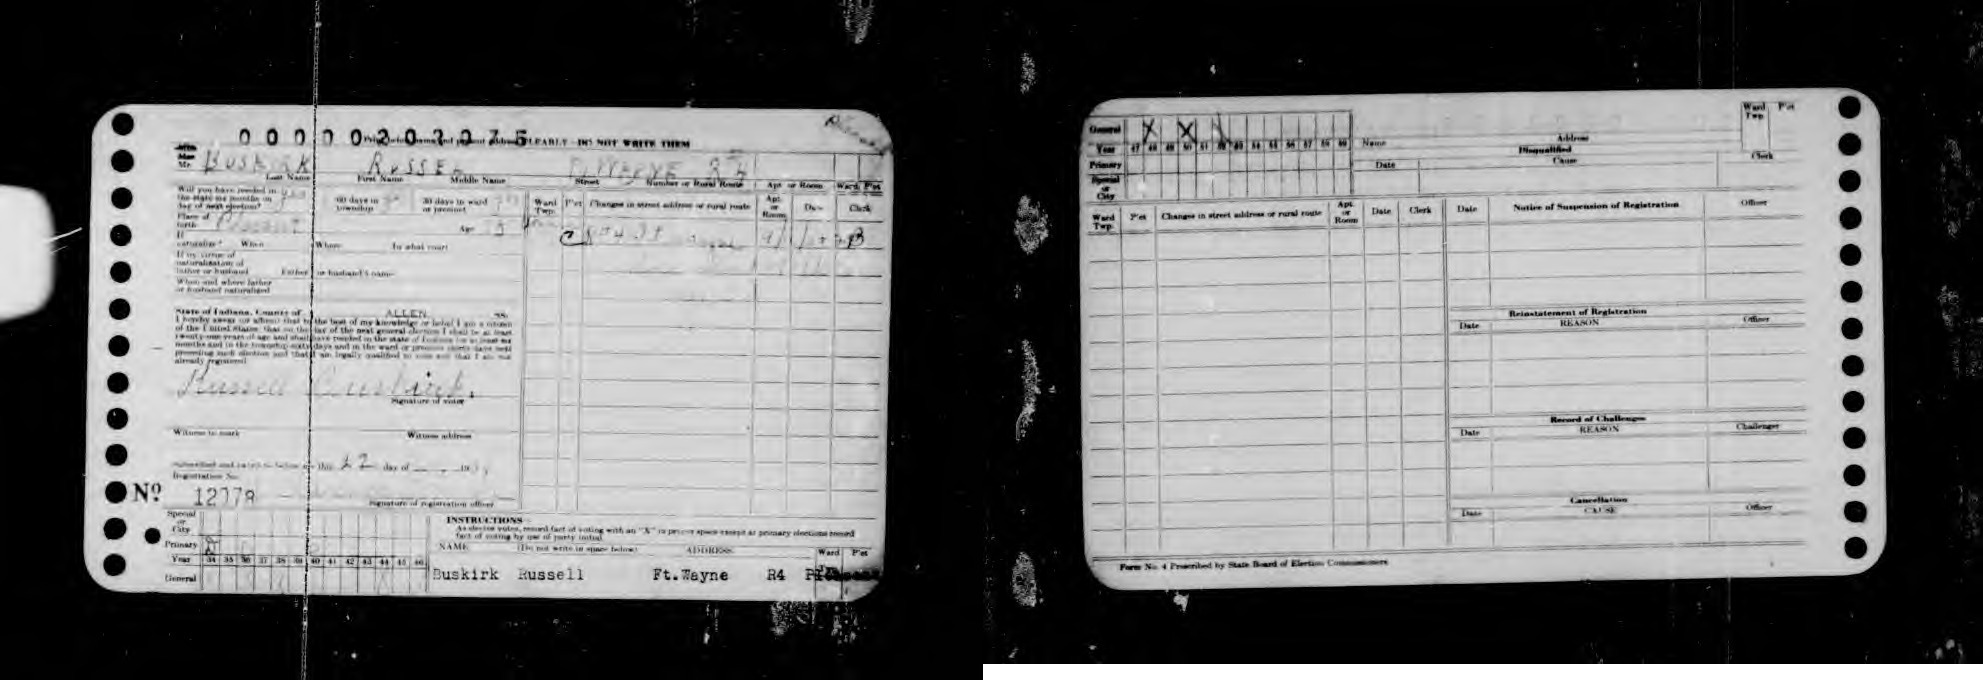 0 0 0 0 0 2 0 3 0 7 5 CLEARLY—DO NOT WRITE THEM
Mr. BUSKIRK RUSSEL FT WAYNE R 4
Last Name First Name Middle Name Street Number or Rural Route Apt. or Room Ward P'ct
Will you have resided in
the state six months on
day of next election? yes 60 days in
township? 30 days in ward
or precinct
Place of
birth Age
If
naturalized When Where In what court
If by virtue of
naturalization of
father or husband Father or husband's name
When and where father
or husband naturalized
Ward
Twp. P'ct Changes in street address or rural route Apt.
or
Room Date Clerk
State of Indiana, County of ALLEN SS:
I hereby swear (or affirm) that to the best of my knowledge or belief I am a citizen
of the United States; that on the day of the next general election I shall be at least
twenty-one years of age and shall have resided in the state of Indiana for at least six
months and in the township sixty days and in the ward or precinct thirty days next
preceding such election and that I am legally qualified to vote and that I am not
already registered
Russell Buskirk
Signature of voter
Witness to mark Witness address
Subscribed and sworn to before me this 22 day of
Registration No.
No. 12778
Signature of registration officer
Special
or
City
Primary
Year 34 35 36 37 38 39 40 41 42 43 44 45 46
General
INSTRUCTIONS
As elector votes, record fact of voting with an "X" in proper space except at primary elections record
fact of voting by use of party initial.
NAME (Do not write in space below) ADDRESS Ward P'ct
Buskirk Russell Ft.Wayne R4
General X X
Year 47 48 49 50 51 52 53 54 55 56 57 58 59
Primary
Special
or
City
Name Address Ward
Twp. P'ct
Disqualified
Date Cause Clerk
Ward
Twp. P'ct Changes in street address or rural route Apt.
or
Room Date Clerk
Date Notice of Suspension of Registration Officer
Reinstatement of Registration
Date REASON Officer
Record of Challenges
Date REASON Challenger
Cancellation
Date CAUSE Officer
Form No. 4 Prescribed by State Board of Election Commissioners